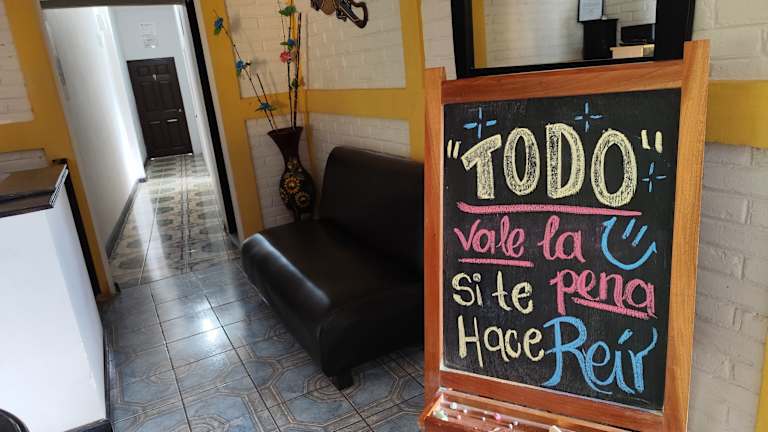 "TODO"
vale la
si te pena
Hace Reír